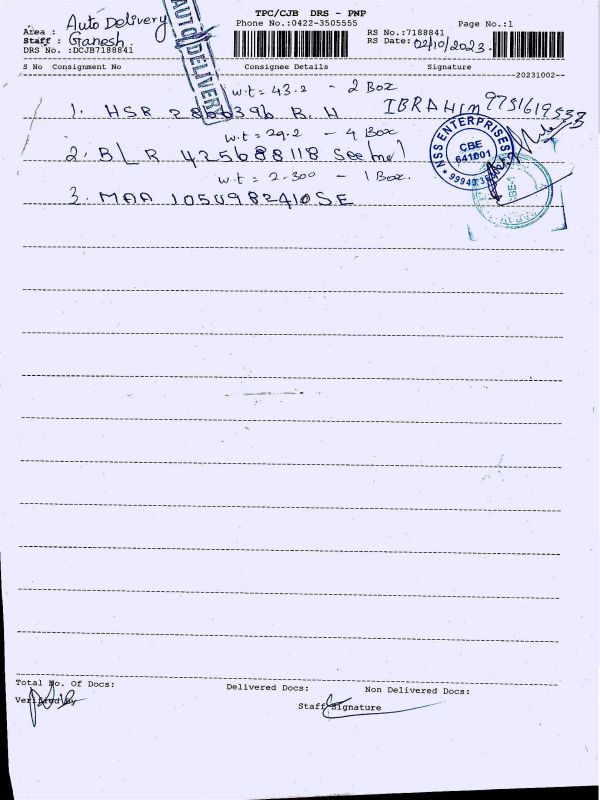 TPC/CJB DRS - PNP
Phone No.:0422-3505555
Page No.:1
Area : Auto Delivery
Staff : Ganesh.
DRS No. :DCJB7188841
RS No.:7188841
RS Date: 02/10/2023.
AUTO DELIVERY
S No Consignment No Consignee Details Signature
20231002--
w.t = 43.2 - 2 Box
1. HSR R. H IBRAHIM
w.t = 29.2 - 4 Box
2. BLR 425688118 Seetmel
w.t = 2.300 - 1 Box.
3. MAA 1054982410 SE
NSS ENTERPRISES
CBE
641001
Total No. Of Docs:
Delivered Docs:
Non Delivered Docs:
Verified By
Staff Signature